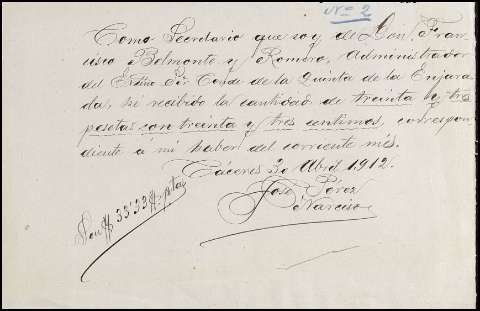 Nº= 2
Como Secretario que soy de Don Fran-
cisco Belmonte y Romero, Administrador
del Exmo. Sr. Conde de la Quinta de la Enjara-
da, hé recibido la cantidad de treinta y tres
pesetas con treinta y tres centimos, correspon-
diente a mi haber del corriente més.
Cáceres 30 Abril 1912.
José Perez
Narciso
Son # 33'33 # ptas